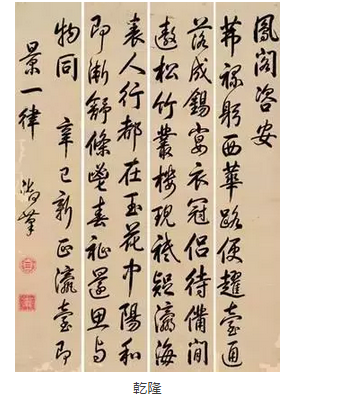 鳳閣咨安
茀祿躬西華路便趯臺通
落成錫宴衣冠侶待備閒
遨松竹叢樓現祗疑瀛海
表人行都在玉花中陽和
即漸舒條鬯春祉還思與
物同 辛巳新正瀛臺即
景一律 御筆
乾隆